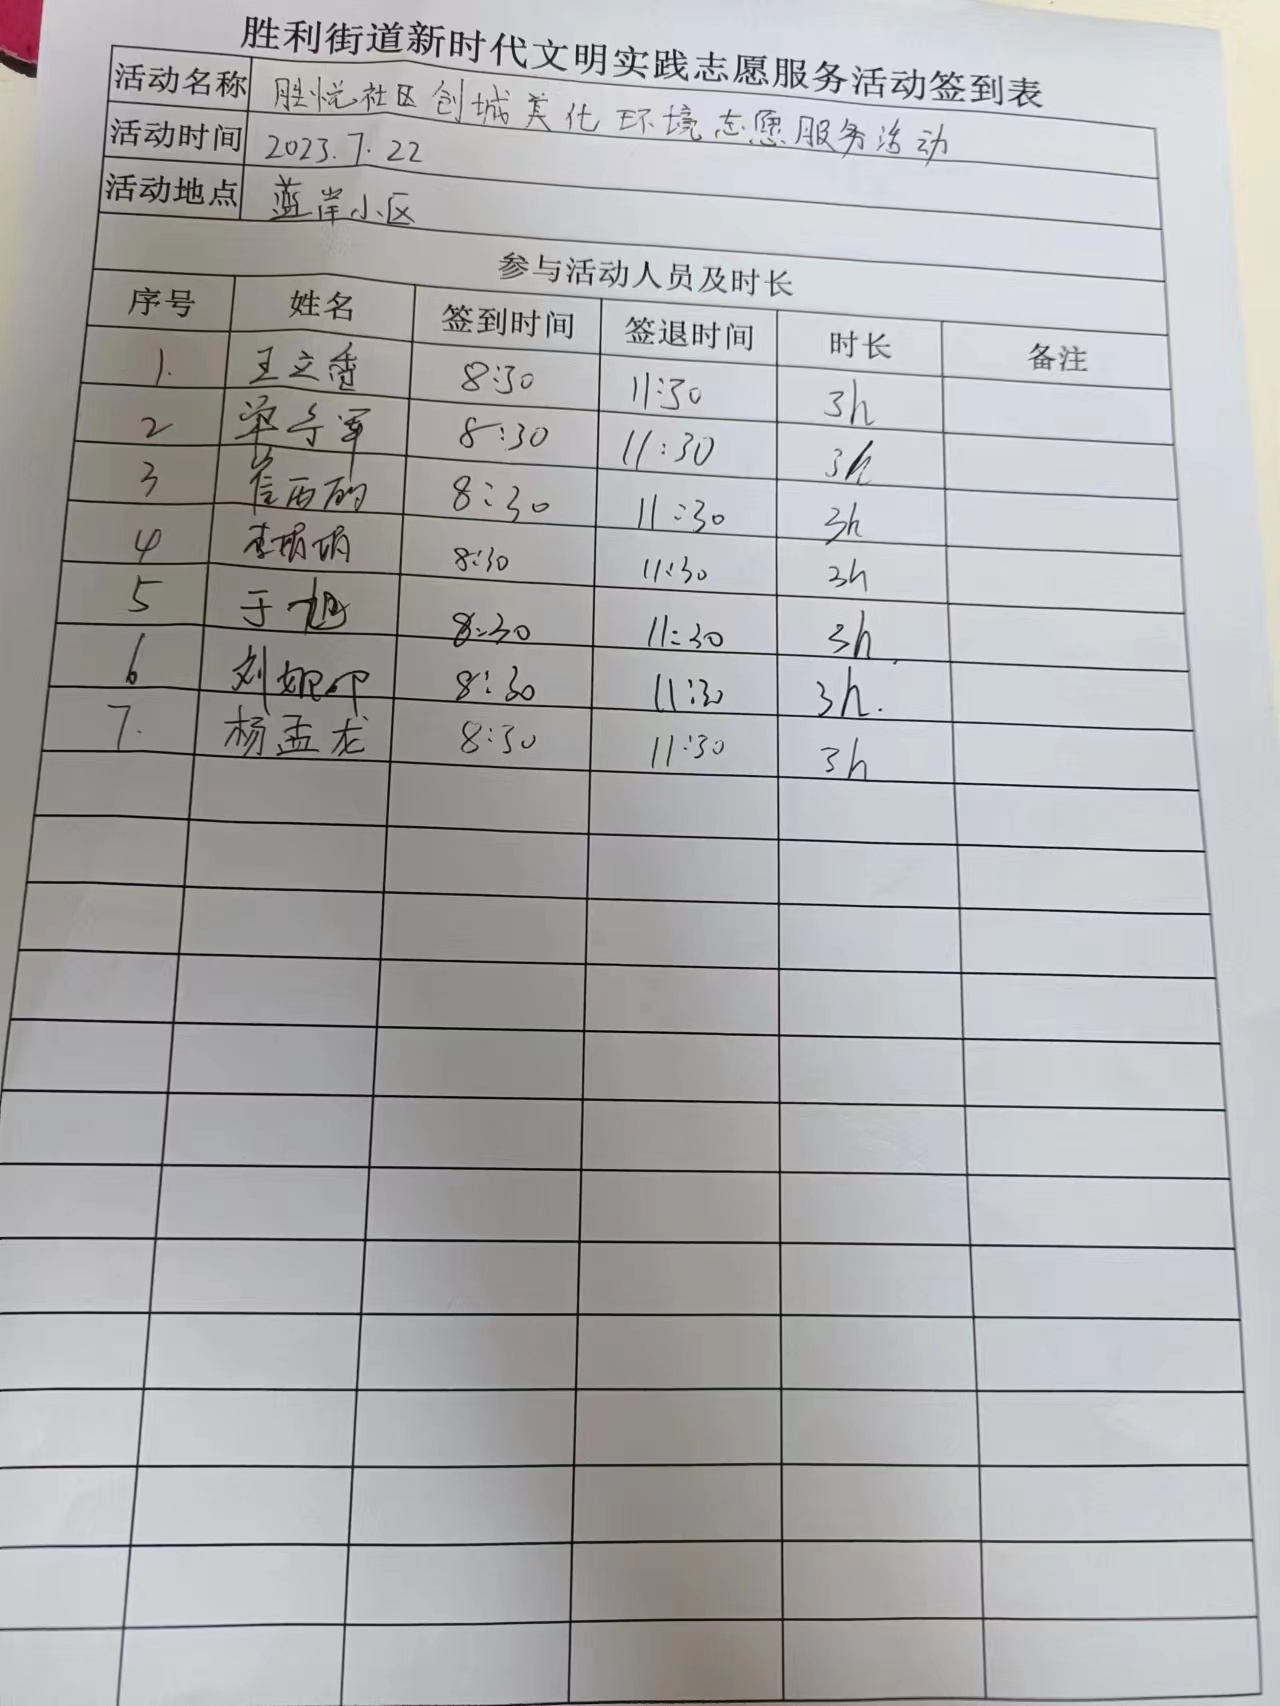 胜利街道新时代文明实践志愿服务活动签到表
活动名称 胜悦社区创城美化环境志愿服务活动
活动时间 2023.7.22
活动地点 蓝岸小区
参与活动人员及时长
序号 姓名 签到时间 签退时间 时长 备注
1. 王立香 8:30 11:30 3h
2 8:30 11:30 3h
3 8:30 11:30 3h
4 李娟娟 8:30 11:30 3h
5 于旭 8:30 11:30 3h
6 刘 8:30 11:30 3h.
7. 杨孟龙 8:30 11:30 3h